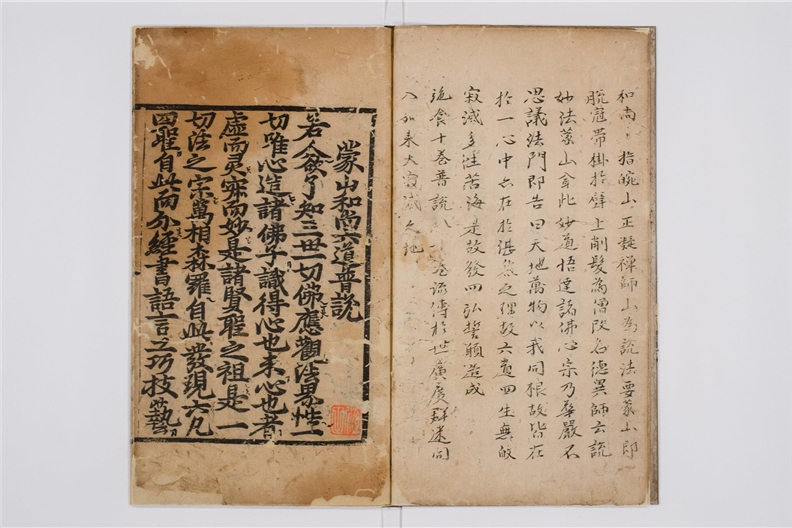 和尚〻指皖山正凝禅師山為說法要蒙山即
脫冠帶掛於壁上削髮為僧改名德異師云說
妙法蒙山拿此妙道悟達諸佛心宗乃華嚴不
思議法門即告曰天地萬物以我同根故皆在
於一心中亦在於湛然之理故六道四生無餘
寂滅多淫苦海是故發四弘誓願造成
施食十卷普說 流傳於世廣度群迷同
入如来大寂滅之地
蒙山和尚六道普說
若人欲了知三世一切佛應觀法界性一
切唯心造諸佛子識得心也未心也者
虛而灵寂而妙是諸賢聖之祖是一
切法之宗萬相森羅自此發現六凡
四聖自此而分經書語言工巧技藝